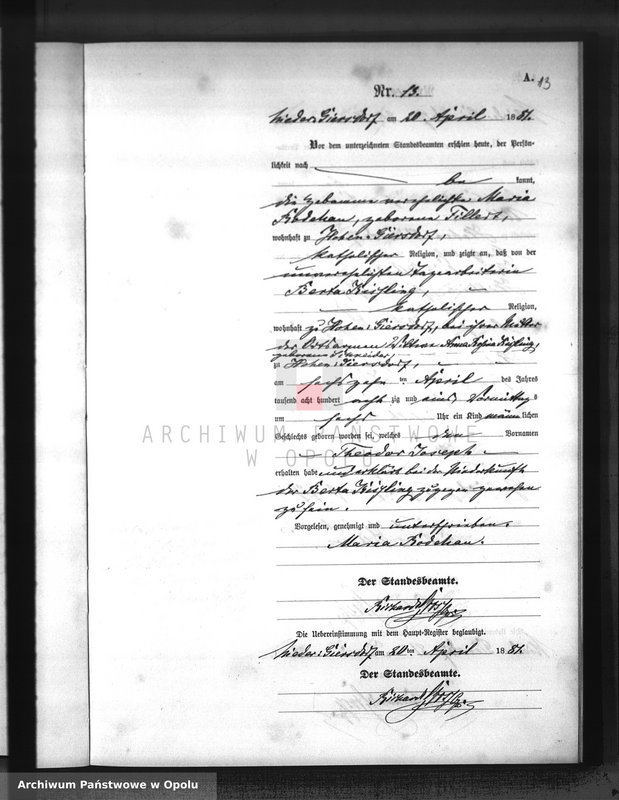 A. 13
Nr. 13.
Nieder-Giersdorf am 20. April 1881.
Vor dem unterzeichneten Standesbeamten erschien heute, der Persön-
lichkeit nach
be kannt,
die Hebamme verehelichte Maria
Kodehau, geborene Tillert,
wohnhaft zu Hohen-Giersdorf,
katholischer Religion, und zeigte an, daß von der
unverehelichten Tagearbeiterin
Berta Kißling,
katholischer Religion,
wohnhaft zu Hohen-Giersdorf, bei ihrer Mutter
der Ortsarmen Wittwe Anna Kißling,
geborene Schneider,
zu Hohen-Giersdorf,
am sechszehn ten April des Jahres
tausend acht hundert acht zig und eins Vormittags
um sechs Uhr ein Kind männlichen
Geschlechts geboren worden sei, welches den Vornamen
Theodor Joseph
erhalten habe und erklärt bei der Niederkunft
der Berta Kißling zugegen gewesen
zu sein.
Vorgelesen, genehmigt und unterschrieben.
Maria Kodehau.
Der Standesbeamte.
Die Uebereinstimmung mit dem Haupt-Register beglaubigt.
Nieder-Giersdorf am 20ten April 1881.
Der Standesbeamte.
ARCHIWUM PAŃSTWOWE
W OPOLU
Archiwum Państwowe w Opolu